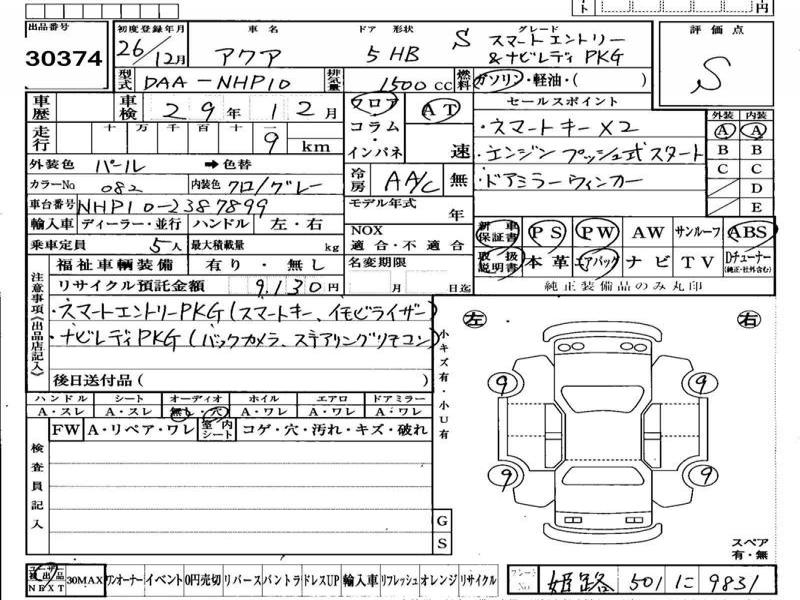 出品番号 30374
初度登録年月 26/12月
車名 アクア
ドア 形状 5 HB
グレード S スマートエントリー
&ナビレディPKG
評価点 S
型式 DAA-NHP10
排気量 1500 CC
燃料 ガソリン・軽油・( )
車歴
車検 29年12月
フロア
コラム
・
インパネ
AT
速
セールスポイント
・スマートキー×2
・エンジン プッシュ式スタート
・ドアミラーウィンカー
外装 内装
A A
B B
C C
D
E
走行 十万千百十一
9 km
外装色 パール ➡色替
カラーNo 082
内装色 クロ/グレー
冷房 AA/C 無
車台番号 NHP10-2387899
モデル年式 年
輸入車 ディーラー・並行 ハンドル 左・右
NOX
適合・不適合
乗車定員 5人 最大積載量 kg
新車保証書 PS PW AW サンルーフ ABS
取扱説明書 本革 エアバッグ ナビ TV Dチューナー
(純正・社外含む)
純正装備品のみ丸印
福祉車輌装備 有り・無し
名変期限
月 日迄
リサイクル預託金額 9,130円
注意事項(出品店記入)
・スマートエントリーPKG(スマートキー、イモビライザー)
・ナビレディPKG(バックカメラ、ステアリングリモコン)
後日送付品( )
小キズ有・小U有
左 右
9 9
9 9
ハンドル シート オーディオ ホイル エアロ ドアミラー
A・スレ A・スレ 無し・穴 A・ワレ A・ワレ A・ワレ
FW A・リペア・ワレ 室内シート コゲ・穴・汚れ・キズ・破れ
検査員記入
G
S
スペア
有・無
NEXT 30MAX ワンオーナー イベント 0円売切 リバース バントラ ドレスUP 輸入車 リフレッシュ オレンジ リサイクル
姫路 501 に 9831
円